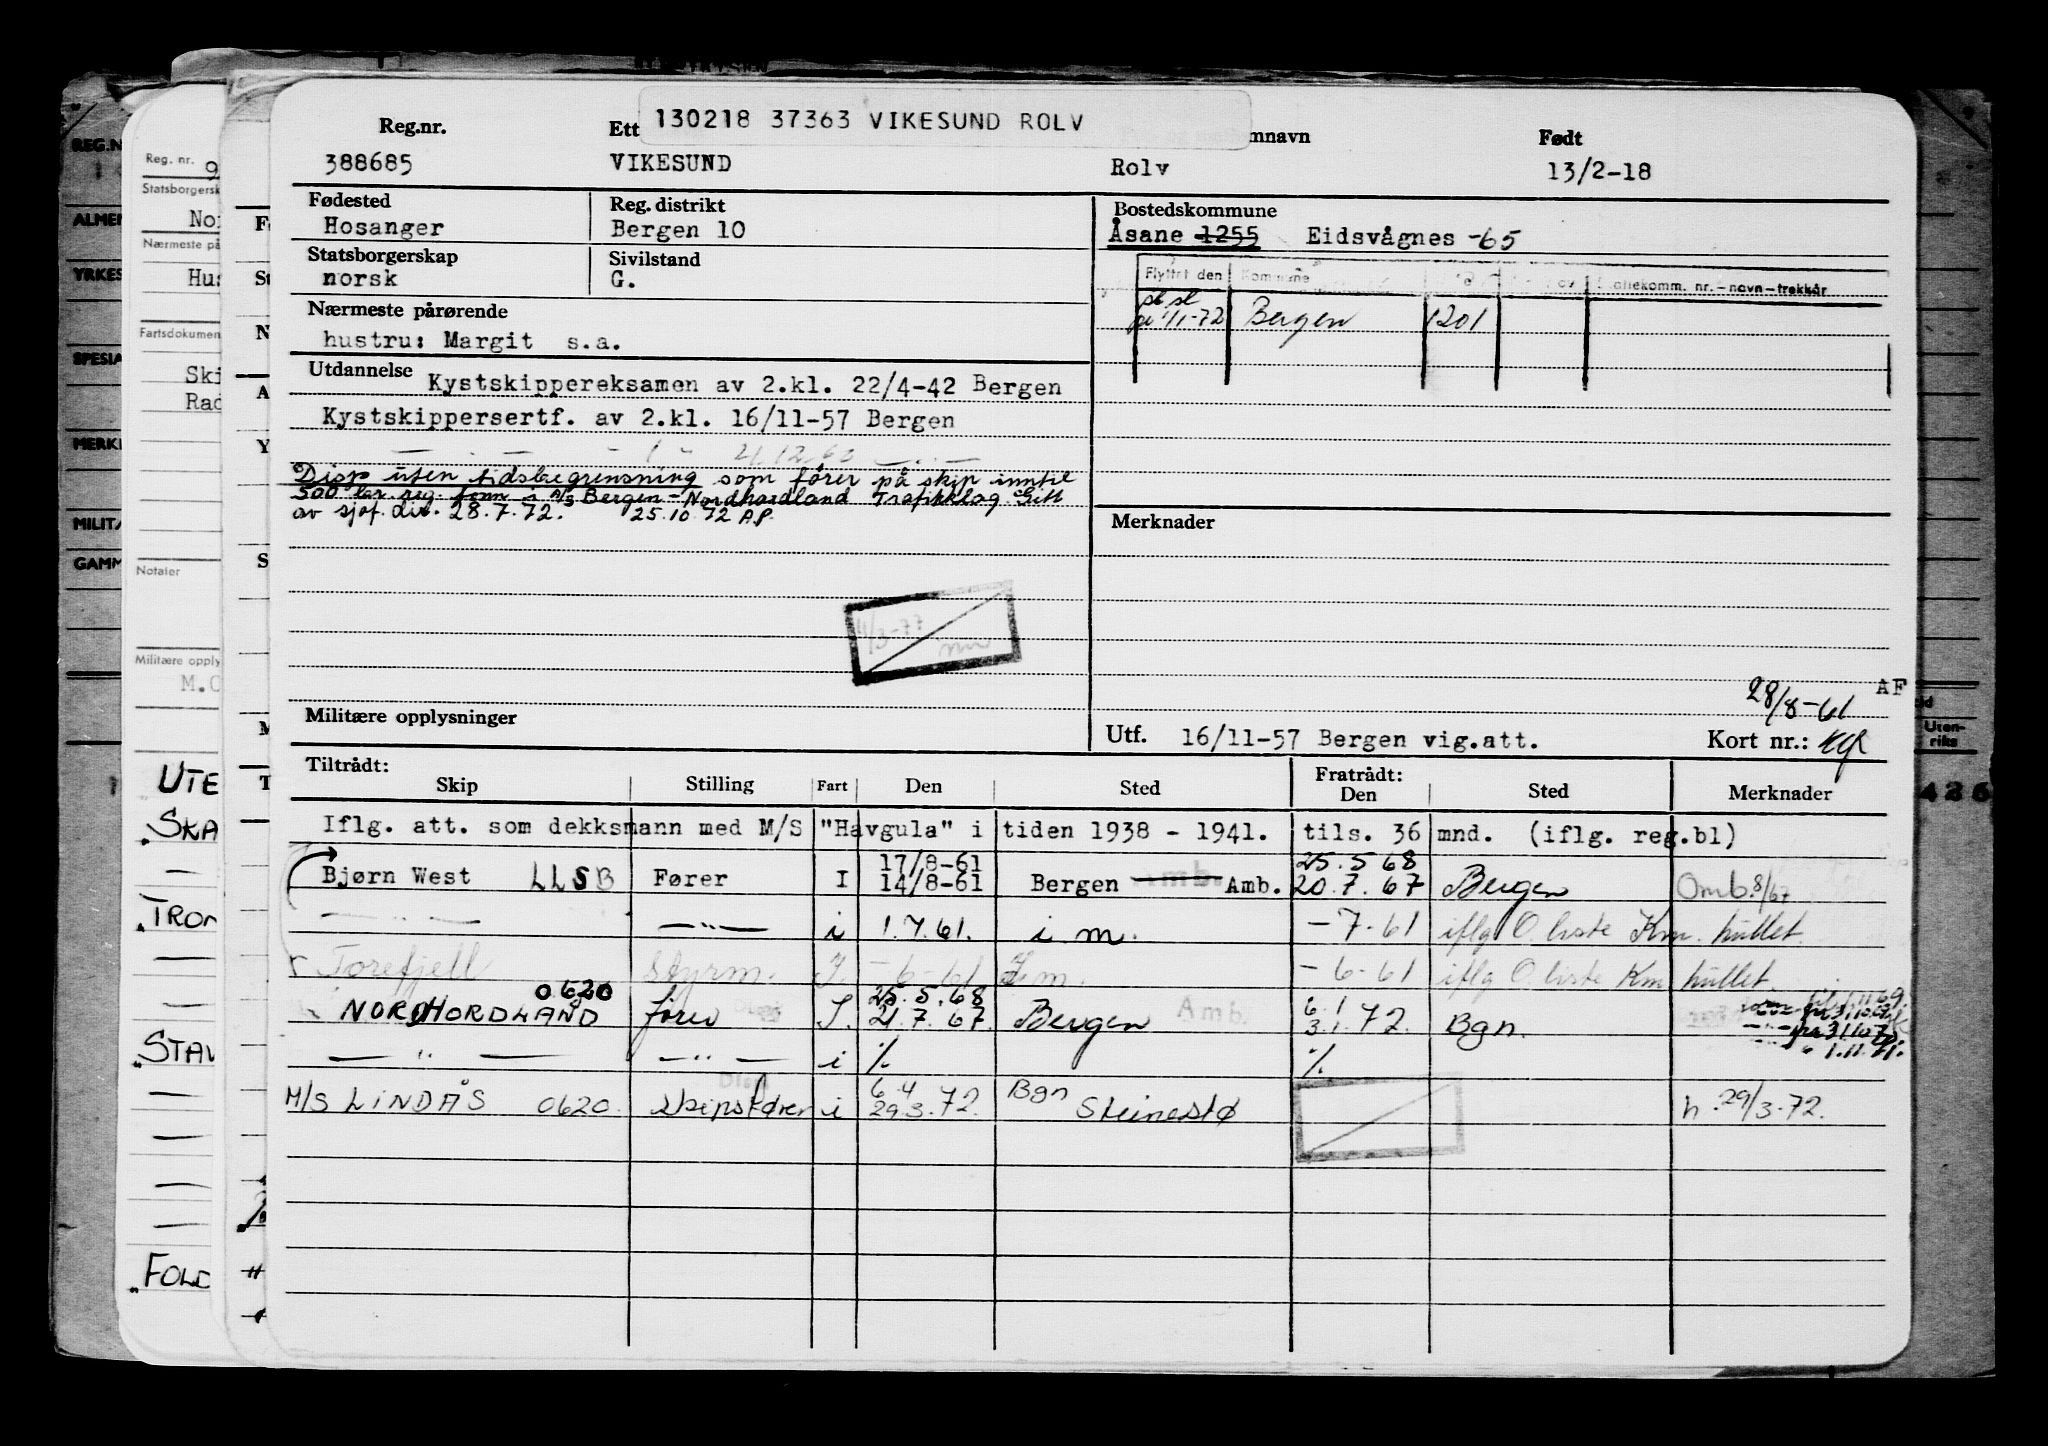 130218 37363 VIKESUND ROLV
Reg.nr. Ett mnavn Født
388685 VIKESUND Rolv 13/2-18
Fødested Reg. distrikt Bostedskommune
Hosanger Bergen 10 Åsane 1255 Eidsvågnes -65
Statsborgerskap Sivilstand
norsk G.
Flyttet den Kommune nr. – navn – trekkår
1/1-72 Bergen 1201
Nærmeste pårørende
hustru: Margit s.a.
Utdannelse Kystskippereksamen av 2.kl. 22/4-42 Bergen
Kystskippersertf. av 2.kl. 16/11-57 Bergen
— . — - 1 " 21.12.60 — . . —
Disp uten tidsbegrensning som fører på skip inntil
500 br. reg. tonn i A/S Bergen-Nordhordland Trafikklag. Gitt
av sjøf. dir. 28.7.72. 25.10.72 A.P.
Merknader
11/3-77
AF
28/8-61
Militære opplysninger
Utf. 16/11-57 Bergen vig.att. Kort nr.:
Tiltrådt: Fratrådt:
Skip Stilling Fart Den Sted Den Sted Merknader
Iflg. att. som dekksmann med M/S "Havgula" i tiden 1938 - 1941. tils. 36 mnd. (iflg. reg.bl)
17/8-61 25.5.68
Bjørn West LLSB Fører I 14/8-61 Bergen Amb. Amb. 20.7.67 Bergen Omb. 8/67
— " — — " — i 1.7.61. i m. -7-61 iflg O. liste Km. hullet.
Torefjell Styrm. I. -6-61 I m. -6-61 iflg O liste Km hullet.
0620 25.5.68 6.1
NORDHORDLAND fører I. 21.7.67 Bergen Amb. 3.1.72. Bgn.
— " — — " — i % % 1.11.71.
M/S LINDÅS 0620. Skipsfører i 6.4 29.3.72. Bgn Steinestø h. 29/3-72.
REG.N
ALMEN
YRKES
SPESIA
MERK
MILITÆ
GAMM
Reg. nr. 9
Statsborgersk
Nor
Nærmeste på
Hus
Fartsdokumen
Ski
Rad
Notater
Militære opply
M.C
UTE
SKA
TROM
STAV
FOLD
Uten-
riks
426